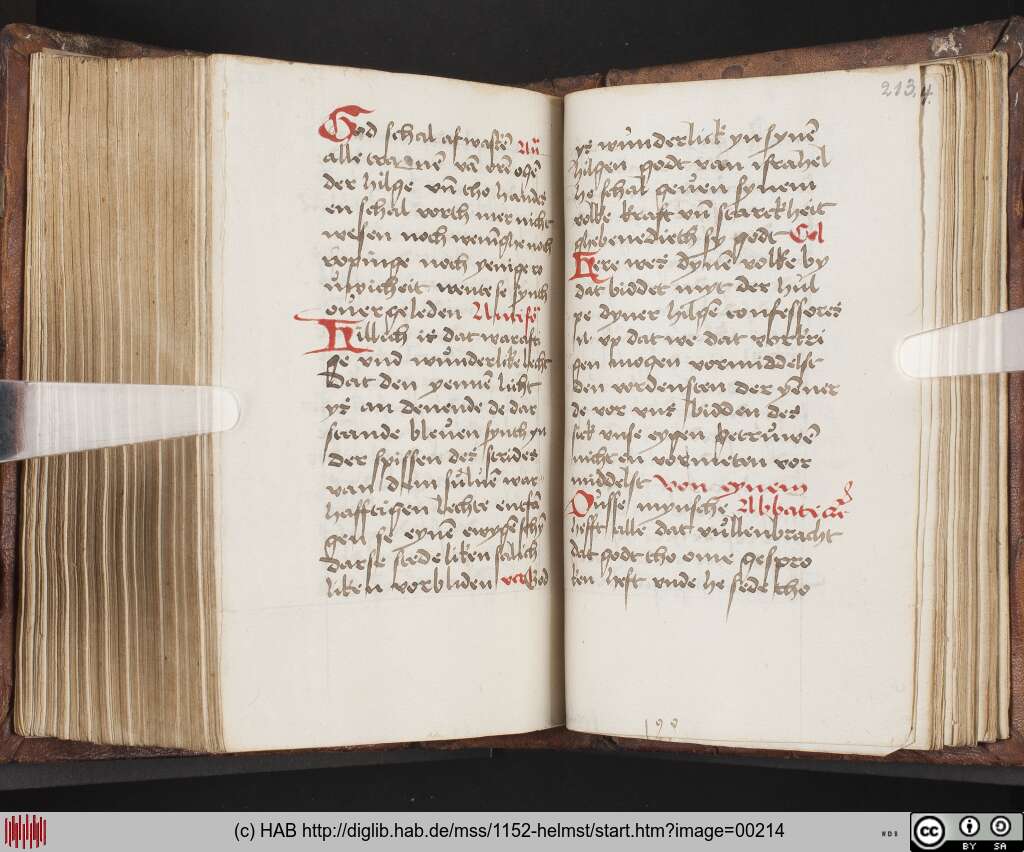 God schal afwasken Aū
alle tranen vā oren ogē
der hilge vn̄ tho handes
en schal vorth mer nicht
wesen noch wenīghe noch
ropinge noch yenige ro
wicheit wente se synth
ouergeleden Antifē
Hillich is dat warafti
ge vnd wunderlike lecht
Dat den yennē licht
ys an denende de dar
stande bleuen synth yn
der spissen des strides
van dem suluen war
hafftigen lechte entfā
gen se eynē ewygē schy
darse stedeliken salich
liken vorbliden ver God
213 4
ys wunderlick yn synē
hilgen godt van israhel
he schal geuen synem
volke kraft vn̄ starckheit
ghebenediet sy godt Col
Here wes dynē volke by
dat biddet myt der hul
pe dyner hilgē confessores
up dat we dat vorkri
gen mogen vormiddelst
den vordensten der yener
de vor vns bidden des
sick vnse eygen betruwē
nicht en vormeten vor
middelst Von eynem
Dusse mynsche Abbate
hefft alle dat vullenbracht
dat godt tho ome gespro
ken heft vnde he sede tho
199
(c) HAB http://diglib.hab.de/mss/1152-helmst/start.htm?image=00214
WDB
cc
BY SA